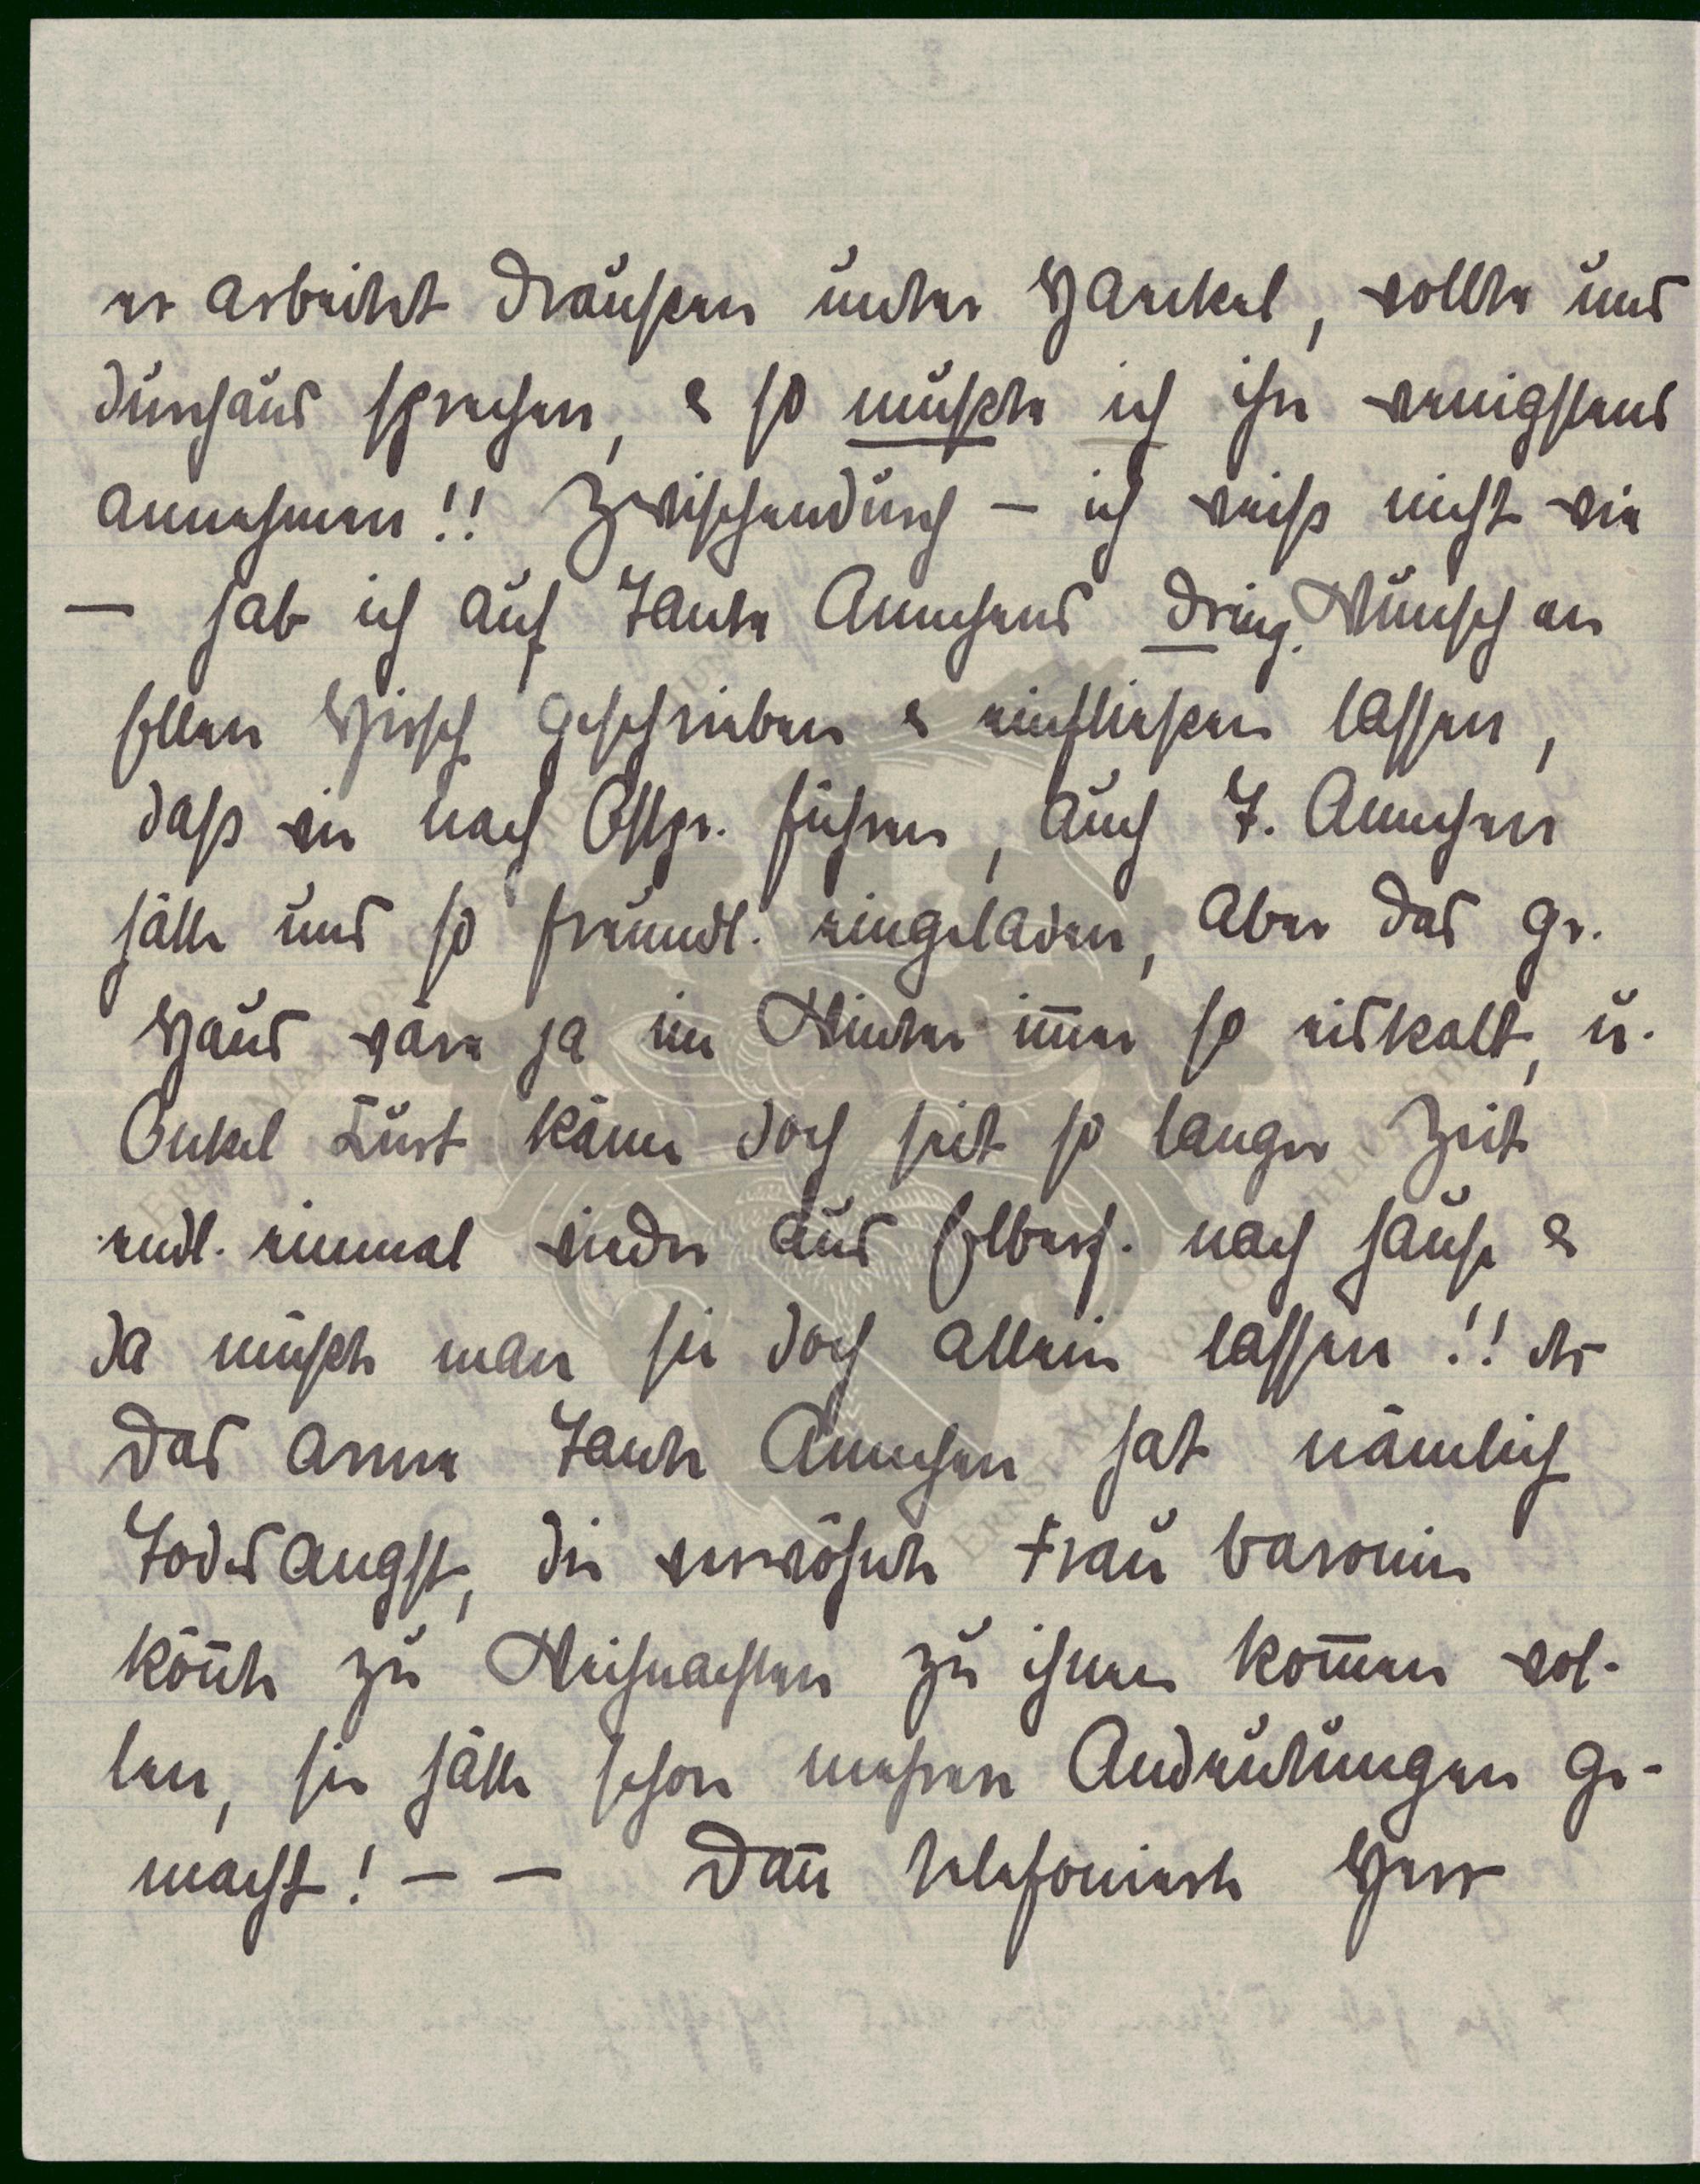 er arbeitet draußen unter Haeckel, wollte uns
durchaus sprechen, & so mußte ich ihn wenigstens
annehmen!! Zwischendurch – ich weiß nicht wie
– hab ich auf Tante Annchens dring. Wunsch an
Ellen Hirsch geschrieben & einfließen lassen,
daß wir nach Ostpr. führen, auch T. Annchen
hätte uns so freundl. eingeladen, aber das gr.
Haus wäre ja im Winter im̅er so eiskalt, u.
Onkel Kurt käme doch seit so langer Zeit
endl. einmal wieder aus Elberf. nach Hause &
da müßte man sie doch allein lassen!! etc
Das arme Tante Annchen hat nämlich
Todesangst, die verwöhnte Frau Baronin
kön̅te zu Weihnachten zu ihnen kom̅en wol-
len, sie hätte schon mehrere Andeutungen ge-
macht! – – Dan̅ telefonierte Herr